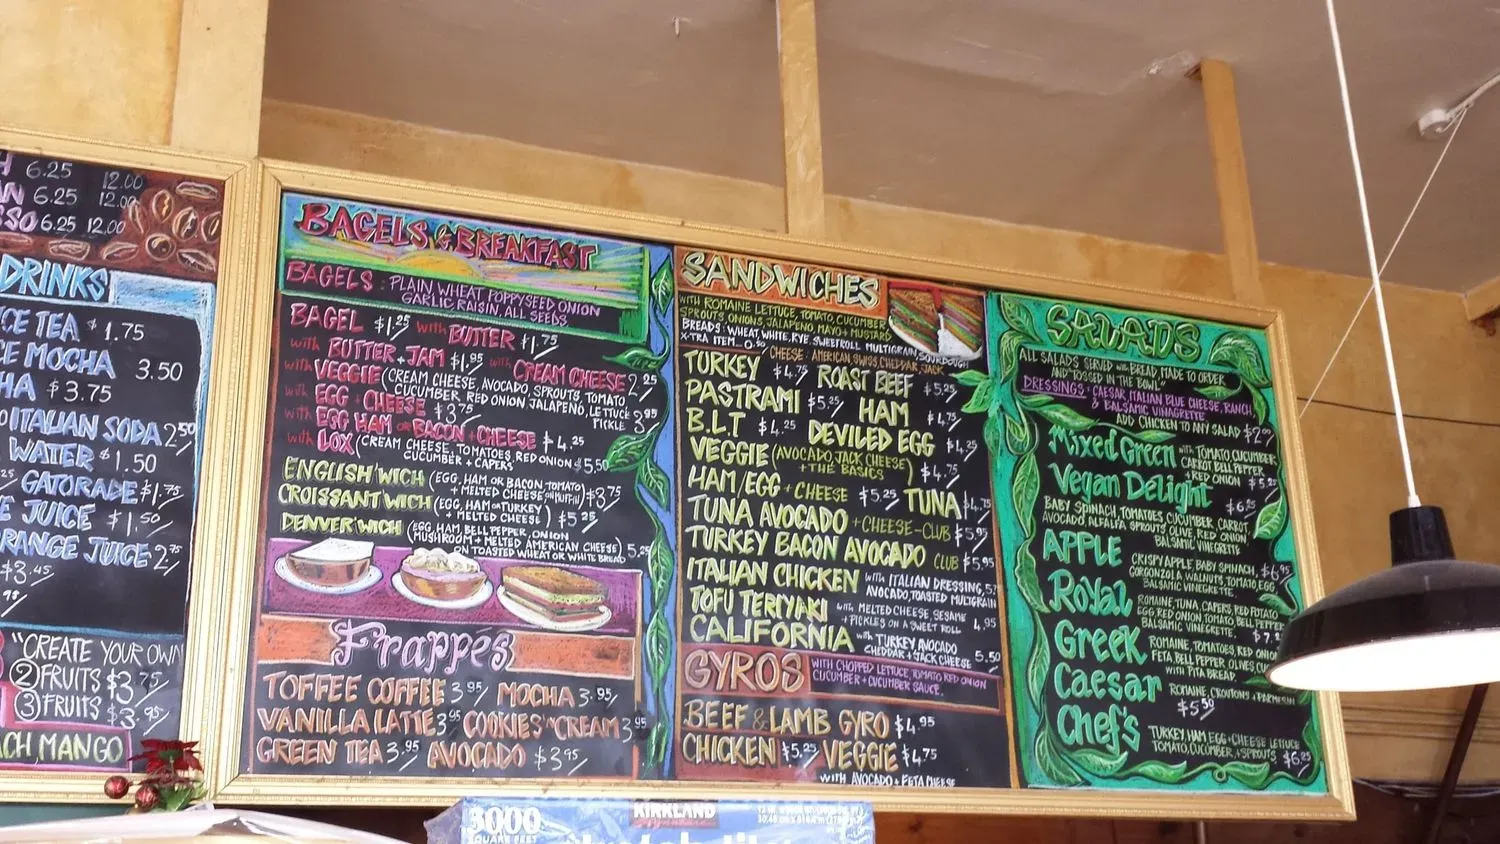 6.25 12.00
6.25 12.00
6.25 12.00
DRINKS
ICE TEA $1.75
MOCHA 3.50
$3.75
ITALIAN SODA 2.50
WATER $1.50
GATORADE $1.75
JUICE $1.50
ORANGE JUICE 2.75
$3.45
"CREATE YOUR OWN
2 FRUITS $3.75
3 FRUITS $3.95
MANGO
BAGELS & BREAKFAST
BAGELS: PLAIN, WHEAT, POPPYSEED ONION
GARLIC RAISIN, ALL SEEDS
BAGEL $1.25 with BUTTER $1.75
with BUTTER + JAM $1.95 with CREAM CHEESE 2.25
with VEGGIE (CREAM CHEESE, AVOCADO, SPROUTS, TOMATO
CUCUMBER, RED ONION, JALAPENO, LETTUCE
PICKLE 3.95
with EGG + CHEESE $3.75
with EGG HAM OR BACON + CHEESE $4.25
with LOX (CREAM CHEESE, TOMATOES, RED ONION $5.50
CUCUMBER + CAPERS
ENGLISH WICH (EGG, HAM OR BACON, TOMATO
+ MELTED CHEESE ON MUFFIN) $3.75
CROISSANT WICH (EGG, HAM OR TURKEY
+ MELTED CHEESE) $5.25
DENVER WICH (EGG, HAM, BELL PEPPER, ONION
MUSHROOM + MELTED AMERICAN CHEESE)
ON TOASTED WHEAT OR WHITE BREAD 5.25
Frappés
TOFFEE COFFEE 3.95 MOCHA 3.95
VANILLA LATTE 3.95 COOKIES 'N' CREAM 3.95
GREEN TEA 3.95 AVOCADO $3.95
SANDWICHES
WITH ROMAINE LETTUCE, TOMATO, CUCUMBER
SPROUTS, ONIONS, JALAPENO, MAYO + MUSTARD
BREADS: WHEAT, WHITE, RYE, SWEETROLL MULTIGRAIN, SOURDOUGH
X-TRA ITEM 0.50 CHEESE: AMERICAN, SWISS, CHEDDAR, JACK
TURKEY $4.75 ROAST BEEF $5.25
PASTRAMI $5.25 HAM $4.75
B.L.T $4.25 DEVILED EGG $4.25
VEGGIE (AVOCADO, JACK CHEESE
+ THE BASICS) $4.75
HAM/EGG + CHEESE $5.25 TUNA $4.75
TUNA AVOCADO + CHEESE-CLUB $5.95
TURKEY BACON AVOCADO CLUB $5.95
ITALIAN CHICKEN with ITALIAN DRESSING,
AVOCADO, TOASTED MULTIGRAIN
TOFU TERIYAKI with MELTED CHEESE, SESAME
+ PICKLES ON A SWEET ROLL 4.95
CALIFORNIA with TURKEY AVOCADO
CHEDDAR + JACK CHEESE 5.50
GYROS WITH CHOPPED LETTUCE, TOMATO RED ONION
CUCUMBER + CUCUMBER SAUCE.
BEEF & LAMB GYRO $4.95
CHICKEN $5.25 VEGGIE $4.75
WITH AVOCADO + FETA CHEESE
SALADS
ALL SALADS SERVED with BREAD MADE TO ORDER
AND "TOSSED IN THE BOWL"
DRESSINGS: CAESAR, ITALIAN, BLUE CHEESE, RANCH,
& BALSAMIC VINAGRETTE
ADD CHICKEN TO ANY SALAD $2.00
Mixed Green with TOMATO CUCUMBER
CARROT BELL PEPPER
+ RED ONION $5.25
Vegan Delight $6.25
BABY SPINACH, TOMATOES, CUCUMBER, CARROT,
AVOCADO, ALFALFA SPROUTS, OLIVE, RED ONION
BALSAMIC VINEGRETTE
APPLE CRISPY APPLE, BABY SPINACH, $6.95
GORGONZOLA WALNUTS, TOMATO EGG
BALSAMIC VINEGRETTE.
Royal ROMAINE TUNA, CAPERS, RED POTATO
EGG, RED ONION TOMATO, BELL PEPPER
BALSAMIC VINEGRETTE,
Greek ROMAINE, TOMATOES, RED ONION
FETA, BELL PEPPER, OLIVES
WITH PITA BREAD
Caesar ROMAINE, CROUTONS + PARMESAN
$5.50
Chef's TURKEY, HAM EGG + CHEESE LETTUCE
TOMATO, CUCUMBER, + SPROUTS $6.25
3000
SQUARE FEET
KIRKLAND
Signature